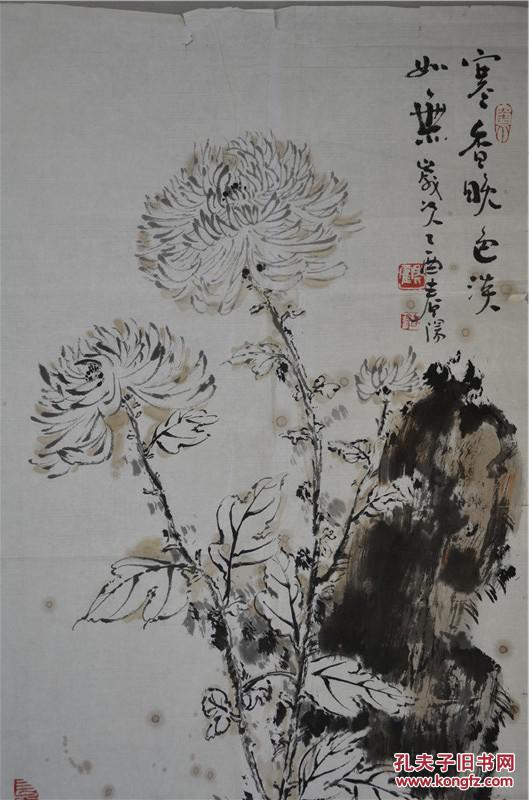 寒香晚色淡
如無歲次乙酉春深
孔夫子旧书网
www.kongfz.com